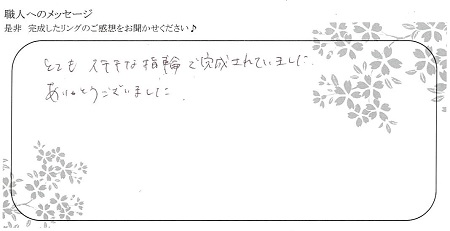 職人へのメッセージ
是非 完成したリングのご感想をお聞かせください♪
とても ステキな指輪で完成されていました。
ありがとうございました。